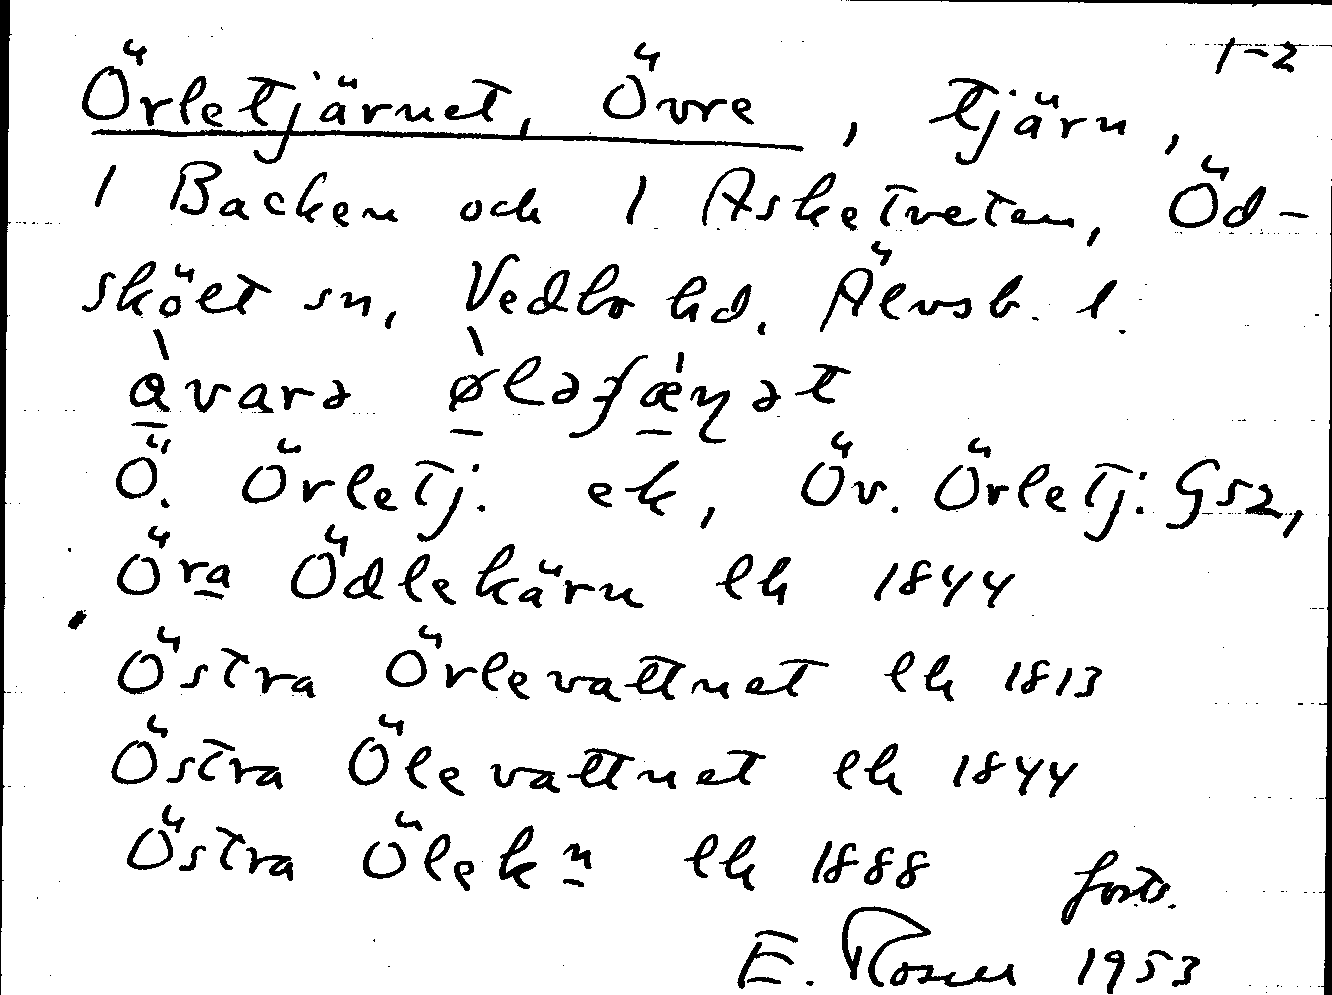 1-2
Örletjärnet, Övre, tjärn,
1 Backen och 1 Asketveten, Öd-
skölt sn, Vedbo hd. Älvsb. l.
å̀varə ø̀ləʃæ̀ɳət
Ö. Örletj. ek, Öv. Örletj. GS2,
Öra Ödlekärn lh 1844
Östra Örlevattnet lh 1813
Östra Ölevattnet lh 1844
Östra Ölekn lh 1888 forts.
E. Rosell 1953